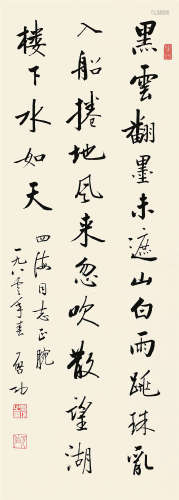 黑雲翻墨未遮山白雨跳珠亂
入船捲地風来忽吹散望湖
樓下水如天
四海同志正腕
一九八零年春 启功